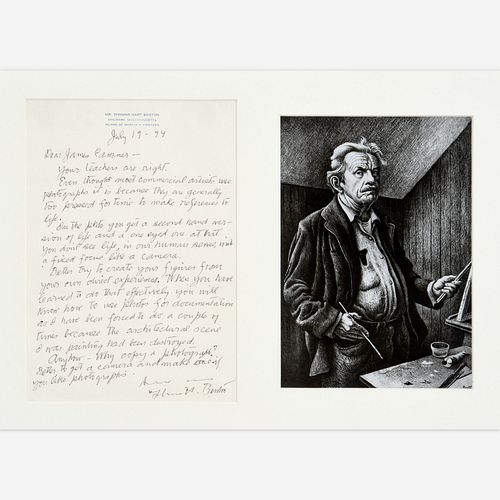 MR. THOMAS HART BENTON
July 19-74
Dear James Cannner –
Your teachers are right.
Even thought most commercial artists use
photographs it is because they are generally
too pressed for time to make references to
life.
In the photo you get a second hand ver-
sion of life and a one eyed one at that.
You don't see life, in our human sense, with
a fixed focus like a camera.
Better try to create your figures from
your own direct experiences. When you have
learned to do that effectively you will
know how to use photos for documentation
as I have been forced to do a couple of
times because the architectural scene
I was painting had been destroyed.
Anyhow – Why copy a photograph?
Better to get a camera and make
you like photographs.
Benton